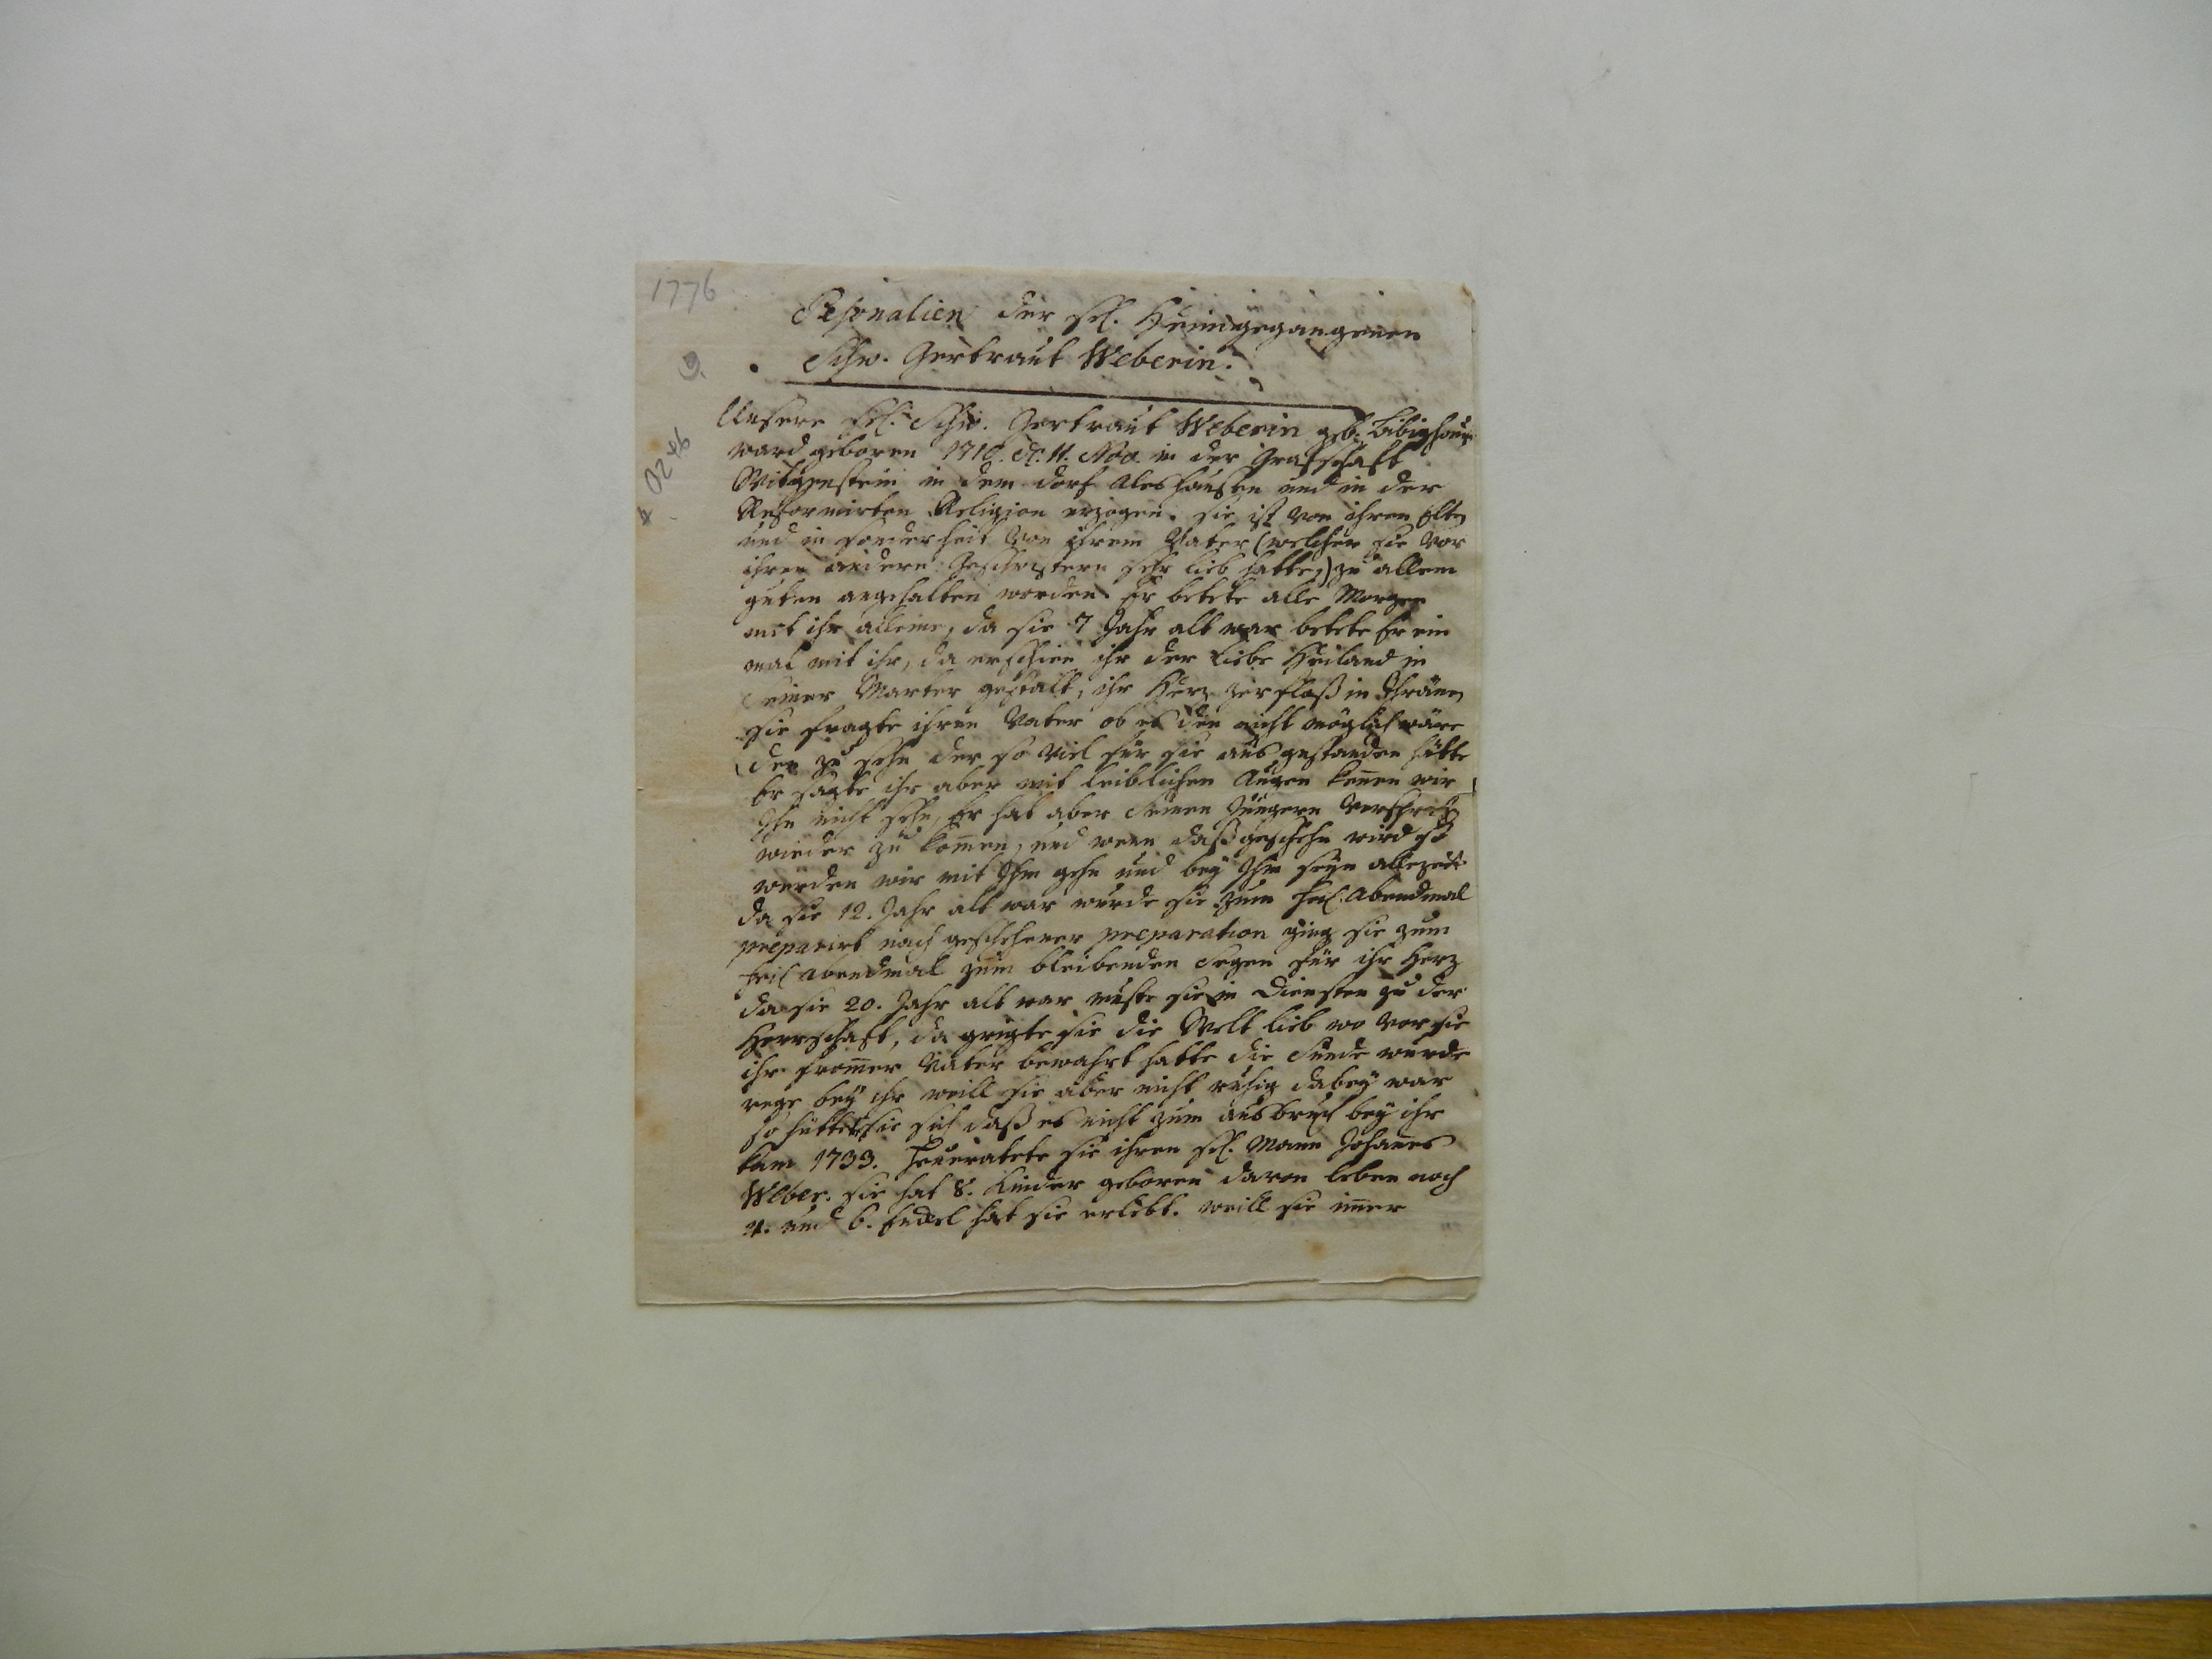 1776
Personalien der sel. Heimgegangenen
Schw. Gertraut Weberin.
9.
4 0246
Unsere sel. Schw. Gertraut Weberin geb. Bibighaus
ward geboren 1710. d. 11. Nov. in der Grafschaft
Witgenstein in dem dorf und in der
Reformirten Religion erzogen. sie ist von ihren Elten
und in sonderheit von ihrem Vater (welcher sie vor
ihren andern Geschwistern sehr lieb hatte,) zu allem
guten angehalten worden. Er betete alle Morgen
mit ihr alleine, da sie 7 Jahr alt war betete Er ein
mal mit ihr, da erschien ihr der liebe Heiland in
seiner Marter gestalt, ihr Herz zerfloß in Thränen
sie fragte ihren Vater ob es den nicht möglich wäre
den zu sehn der so viel für sie ausgestanden hätte
Er sagte ihr aber mit leiblichen Augen kenen wir
Ihn nicht sehn, Er hat aber seinen Jüngern
wieder zu komen, und wenn daß geschehn wird so
werden wir mit Ihm gehn und bey Ihm seyn allezeit
da sie 12. Jahr alt war wurde sie zum heil. Abendmal
preparirt nach geschehener preparation ging sie zum
heil Abendmal zum bleibenden Segen für ihr Herz
da sie 20. Jahr alt war muste sie in Diensten zu der
Herrschaft, da grigte sie die Welt lieb wo vor sie
ihr fromer Vater bewahrt hatte die Sünde wurde
rege bey ihr weill sie aber nicht ruhig dabey war
so hüttete sie sich daß es nicht zum ausbruch bey ihr
kam 1733. heuratete sie ihren sel. Mann Johanes
Weber. sie hat 8. Kinder geboren davon leben noch
4. und 6. Enckel hat sie erlebt. weill sie imer